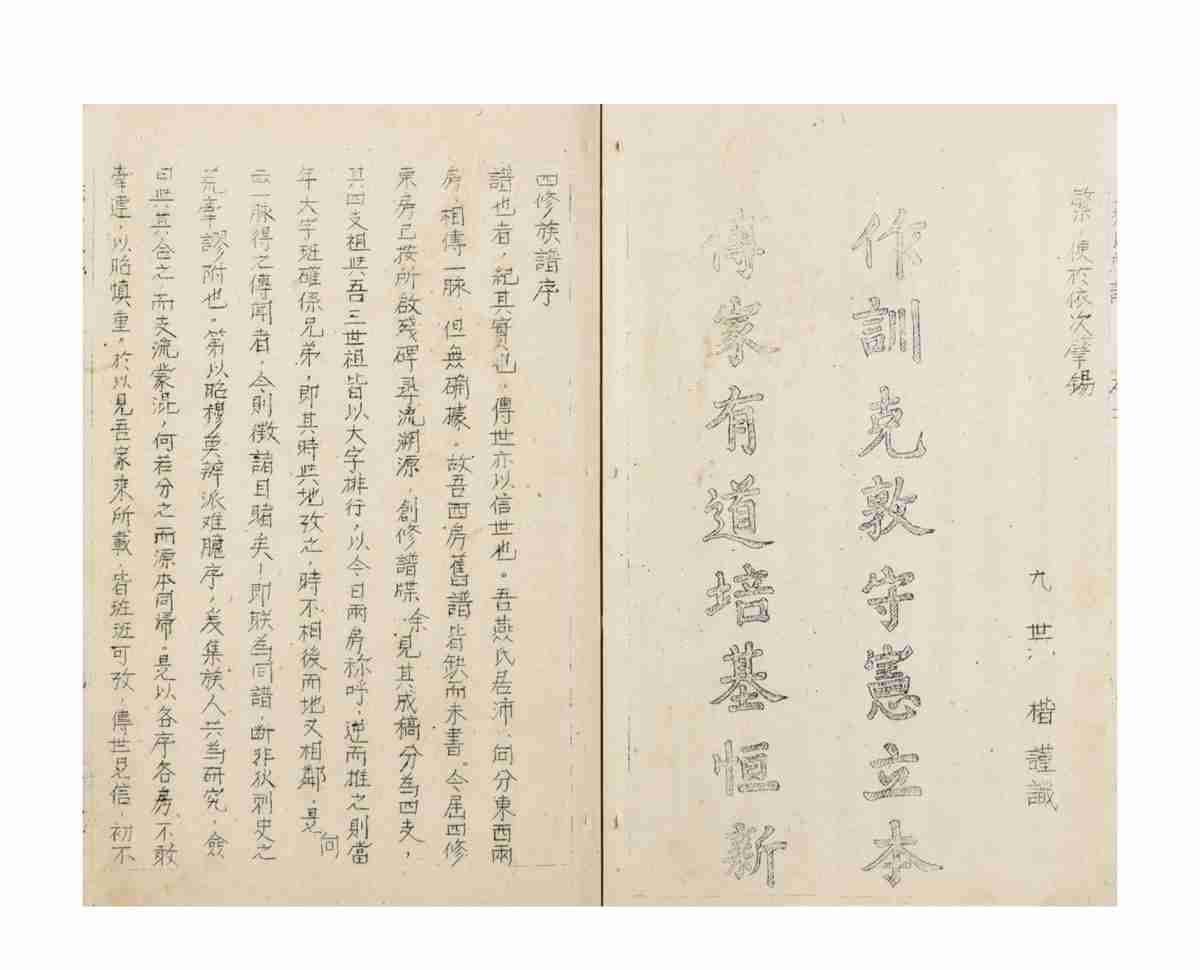 繁，便於依次肇錫
九世 楷謹識
作訓克敦守憲立本
傳家有道培基恒新
四修族譜序
譜也者，紀其實也，傳世亦以信世也。吾燕氏居沛，向分東西兩
房，相傳一脉，但無确據。故吾西房舊譜皆缺而未書。今届四修
東房已按所啟殘碑尋流溯源，創修譜牒，余見其成稿分為四支，
其四支祖與吾三世祖皆以大字排行，以今日兩房称呼，逆而推之則當
年大字班確係兄弟，即其時與地攷之，時不相後而地又相鄰，是
向
云一脉得之傳聞者，今則徵諸目睹矣！即联為同譜，斷非狄刺史之
荒牽謬附也。第以昭穆莫辨派难臆序，爰集族人共為研究，僉
曰與其合之而支流蒙混，何若分之而源本同歸。是以各序各房不敢
牽連，以昭慎重。於以見吾家来所載，皆班班可攷，傳世見信，初不